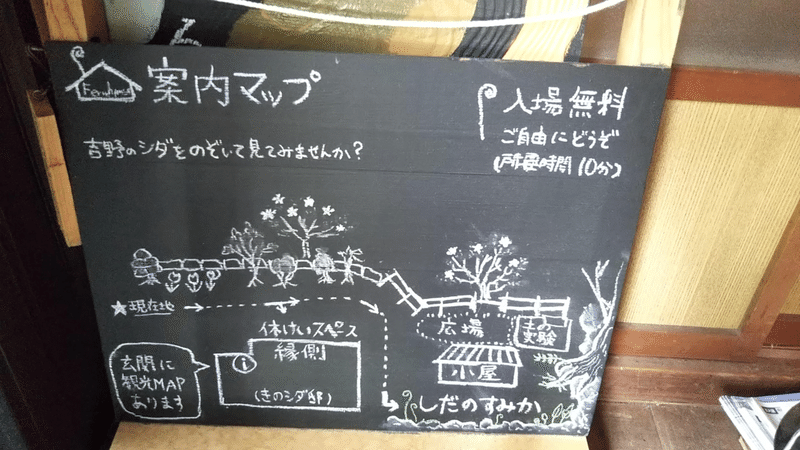 案内マップ
入場無料
ご自由にどうぞ
(所要時間 10分)
吉野のシダをのぞいて見てみませんか?
★現在地
休けいスペース
縁側
i
(きのシダ邸)
玄関に
観光MAP
あります
広場
小屋
実験
しだのすみか